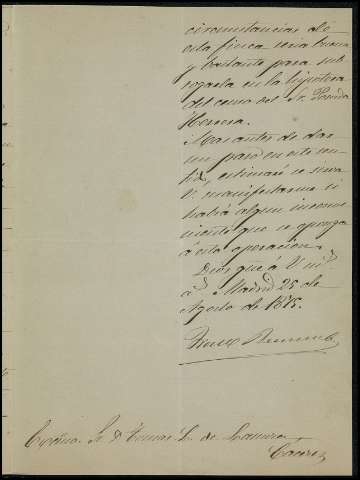 circunstancias de
esta finca seria buena
y bastante para sub
rogarla en la hipoteca
del censo del Sr.
Herrera.
Mas antes de dar
un paso en este sen
tido, estimaré se sirva
V. manifestarme si
habrá algun inconve
niente que se oponga
á esta operacion.
Dios gue á V. m.
a.s Madrid 25 de
Agosto de 1875.
Excmo. Sr. D. L. de